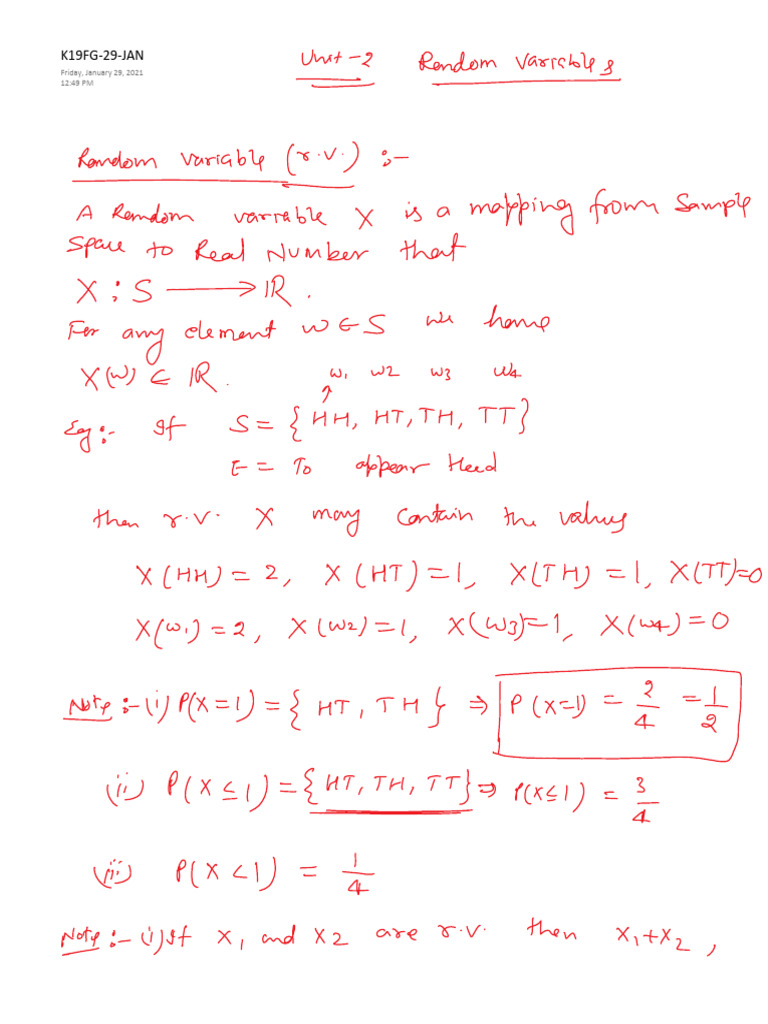 K19FG-29-JAN
Friday, January 29, 2021
12:49 PM
Unit-2 Random Variables
Random variable (r.v.) :-
A Random variable X is a mapping from Sample
Space to Real Number that
X : S ⟶ ℝ.
For any element w ∈ S we have
X(w) ∈ ℝ.
w₁ w2 w3 w4
Eg:- If S = { HH, HT, TH, TT}
E = To appear Head
then r.v. X may contain the values
X(HH) = 2, X(HT) = 1, X(TH) = 1, X(TT)=0
X(w₁) = 2, X(w2) = 1, X(w3)=1, X(w4) = 0
Note :- (i) P(X=1) = { HT, TH } ⇒ P(X=1) = 2/4 = 1/2
(ii) P(X ≤ 1) = {HT, TH, TT} ⇒ P(X≤1) = 3/4
(iii) P(X<1) = 1/4
Note :- (i) If X₁ and X2 are r.v. then X₁+X₂ ,